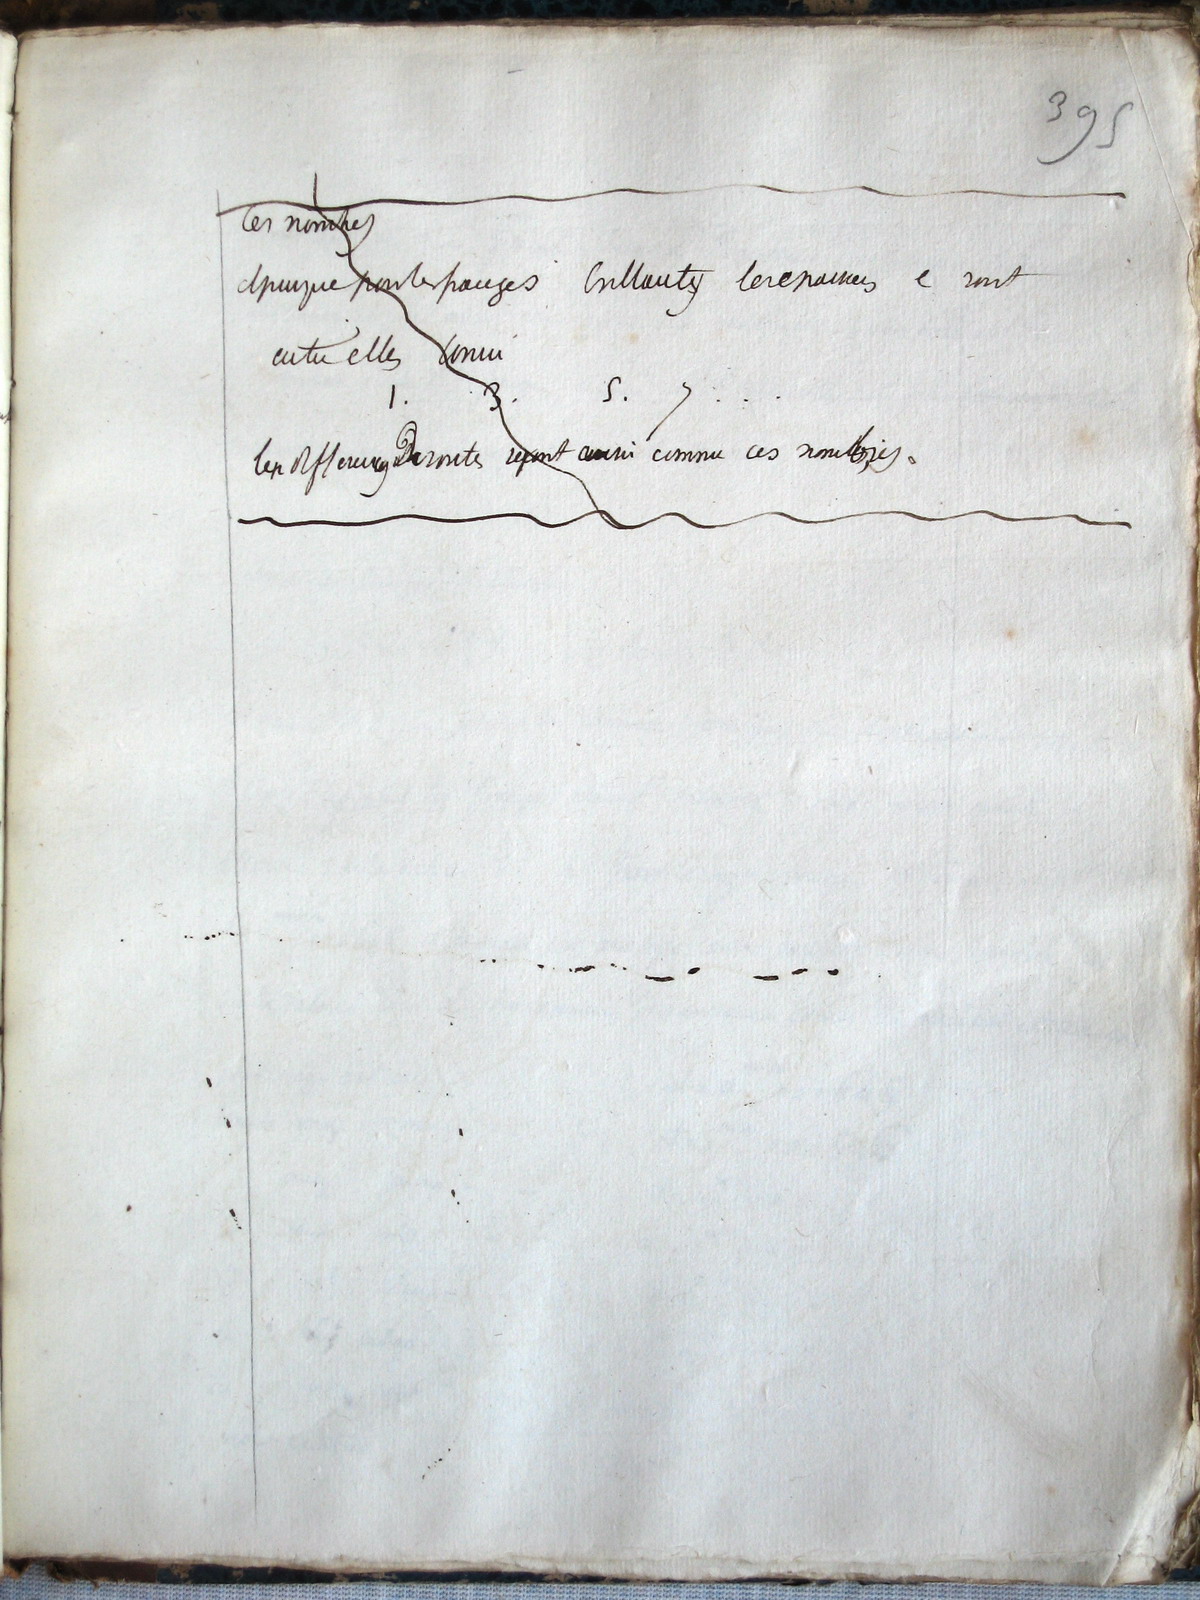 395
Ces nombres
depuis que pour les franges brillantes les epaisseurs e sont
entre elles comme
1. 3. 5. 7 . . .
les differences De routes seront aussi comme ces nombres.